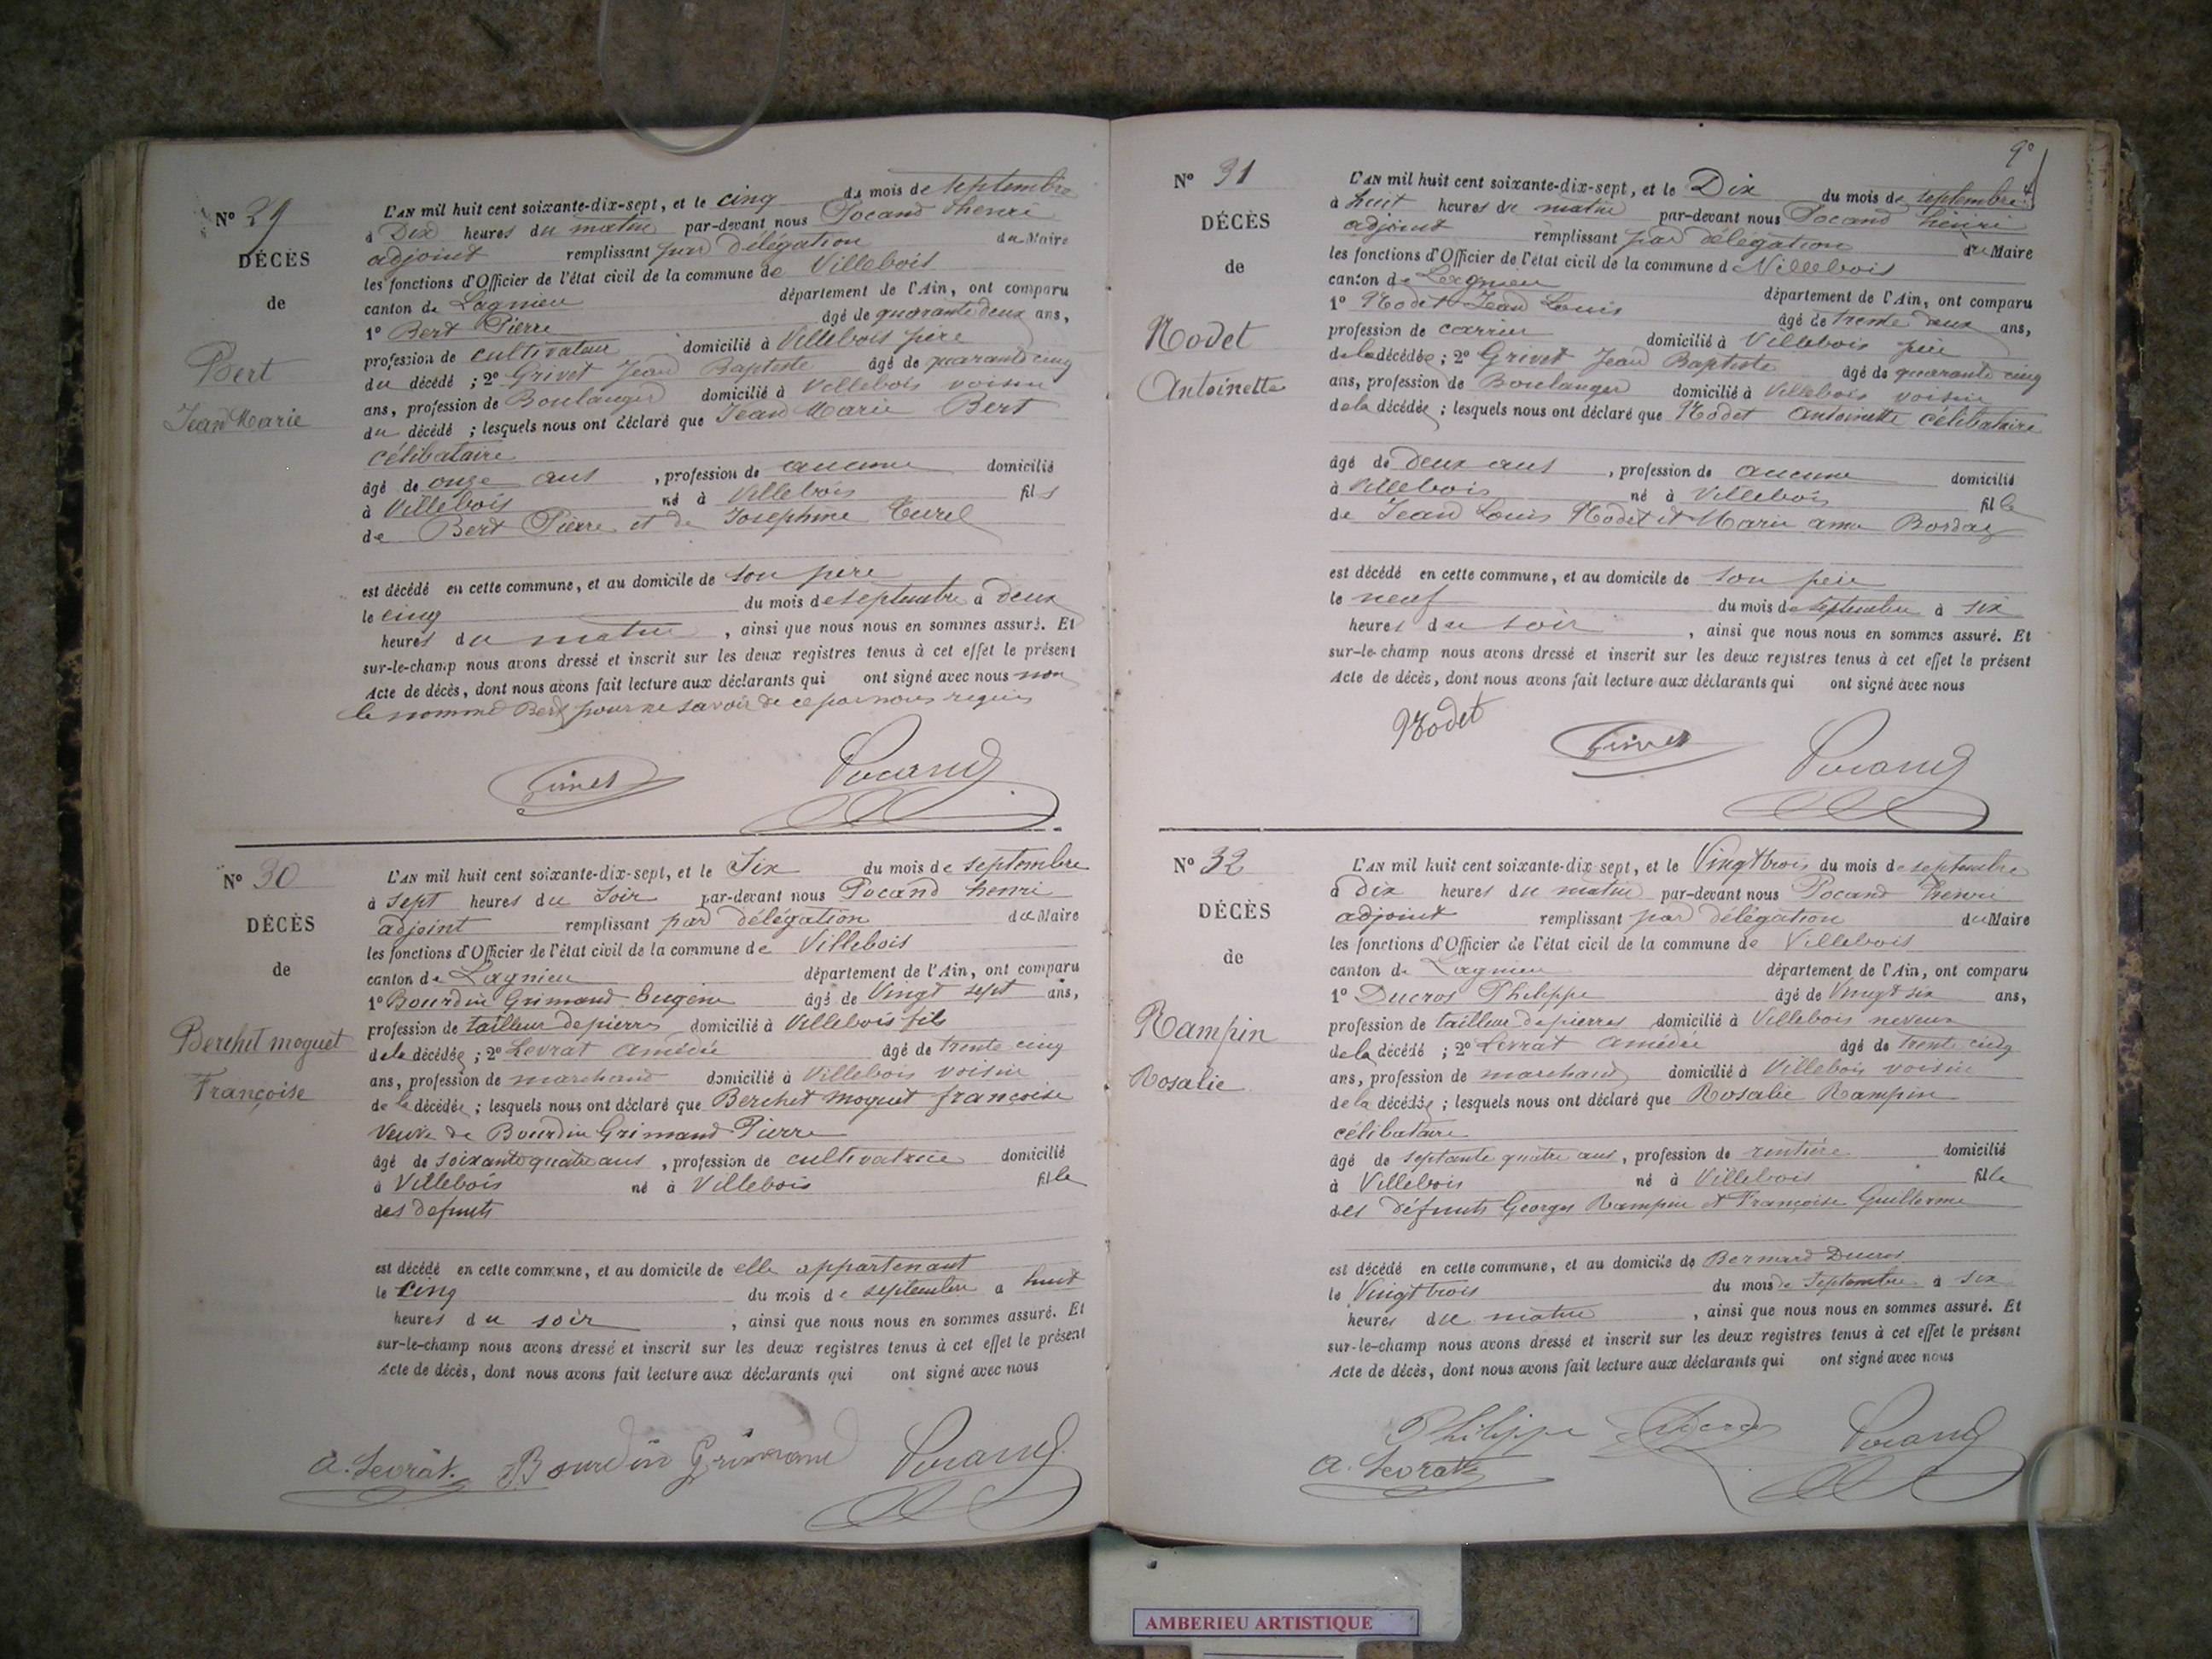 Nº 29
DÉCÈS
de
Bert
Jean Marie
L'AN mil huit cent soixante-dix-sept, et le cinq du mois de septembre
à Dix heures du matin par-devant nous Pocand henri
adjoint remplissant par délégation du Maire
les fonctions d'Officier de l'état civil de la commune de Villebois
canton de Lagnieu département de l'Ain, ont comparu
1º Bert Pierre âgé de quarante deux ans,
profession de cultivateur domicilié à Villebois père
du décédé ; 2º Grivet Jean Baptiste âgé de quarante cinq
ans, profession de Boulanger domicilié à Villebois voisin
du décédé ; lesquels nous ont déclaré que Jean Marie Bert
célibataire
âgé de onze ans , profession de aucune domicilié
à Villebois né à Villebois fils
de Bert Pierre et de Josephine Curel
est décédé en cette commune, et au domicile de son père
le cinq du mois de septembre à deux
heures du matin , ainsi que nous nous en sommes assuré. Et
sur-le-champ nous avons dressé et inscrit sur les deux registres tenus à cet effet le présent
Acte de décès, dont nous avons fait lecture aux déclarants qui ont signé avec nous non
le nommé Bert pour ne savoir de ce par nous requis
Grivet Pocand
Nº 30
DÉCÈS
de
Berchet moguet
Françoise
L'AN mil huit cent soixante-dix-sept, et le Six du mois de septembre
à sept heures du Soir par-devant nous Pocand henri
adjoint remplissant par délégation du Maire
les fonctions d'Officier de l'état civil de la commune de Villebois
canton de Lagnieu département de l'Ain, ont comparu
1º Bourdin Grimaud Eugène âgé de Vingt sept ans,
profession de tailleur de pierres domicilié à Villebois fils
de la décédée ; 2º Levrat Amédée âgé de trente cinq
ans, profession de marchand domicilié à Villebois voisin
de la décédée ; lesquels nous ont déclaré que Berchet moguet françoise
Veuve de Bourdin Grimaud Pierre
âgé de soixante quatre ans , profession de cultivatrice domicilié
à Villebois né à Villebois fille
des défunts
est décédé en cette commune, et au domicile de elle appartenant
le cinq du mois de septembre à huit
heures du soir , ainsi que nous nous en sommes assuré. Et
sur-le-champ nous avons dressé et inscrit sur les deux registres tenus à cet effet le présent
Acte de décès, dont nous avons fait lecture aux déclarants qui ont signé avec nous
A. Levrat. Bourdin Grimaud Pocand
Nº 31
DÉCÈS
de
Nodet
Antoinette
9º
L'AN mil huit cent soixante-dix-sept, et le Dix du mois de septembre
à huit heures du matin par-devant nous Pocand henri
adjoint remplissant par délégation du Maire
les fonctions d'Officier de l'état civil de la commune d Villebois
canton de Lagnieu département de l'Ain, ont comparu
1º Nodet Jean Louis âgé de trente deux ans,
profession de carrier domicilié à Villebois père
de la décédée ; 2º Grivet Jean Baptiste âgé de quarante cinq
ans, profession de Boulanger domicilié à Villebois voisin
de la décédée ; lesquels nous ont déclaré que Nodet Antoinette célibataire
âgé de deux ans , profession de aucune domicilié
à Villebois né à Villebois fille
de Jean Louis Nodet et Marie anne
est décédé en cette commune, et au domicile de son père
le neuf du mois de septembre à six
heures du soir , ainsi que nous nous en sommes assuré. Et
sur-le-champ nous avons dressé et inscrit sur les deux registres tenus à cet effet le présent
Acte de décès, dont nous avons fait lecture aux déclarants qui ont signé avec nous
Nodet Grivet Pocand
Nº 32
DÉCÈS
de
Rampin
Rosalie
L'AN mil huit cent soixante-dix-sept, et le Vingt trois du mois de septembre
à dix heures du matin par-devant nous Pocand henri
adjoint remplissant par délégation du Maire
les fonctions d'Officier de l'état civil de la commune de Villebois
canton de Lagnieu département de l'Ain, ont comparu
1º Ducros Philippe âgé de Vingt six ans,
profession de tailleur de pierres domicilié à Villebois neveux
de la décédé ; 2º Levrat Amédée âgé de trente cinq
ans, profession de marchand domicilié à Villebois voisin
de la décédée ; lesquels nous ont déclaré que Rosalie Rampin
célibataire
âgé de septante quatre ans , profession de rentière domicilié
à Villebois né à Villebois fille
des défunts Georges Rampin et Françoise Guillerme
est décédé en cette commune, et au domicile de Bernard Ducros
le Vingt trois du mois de Septembre à six
heures du matin , ainsi que nous nous en sommes assuré. Et
sur-le-champ nous avons dressé et inscrit sur les deux registres tenus à cet effet le présent
Acte de décès, dont nous avons fait lecture aux déclarants qui ont signé avec nous
Philippe Ducros Pocand
A. Levrat
AMBERIEU ARTISTIQUE